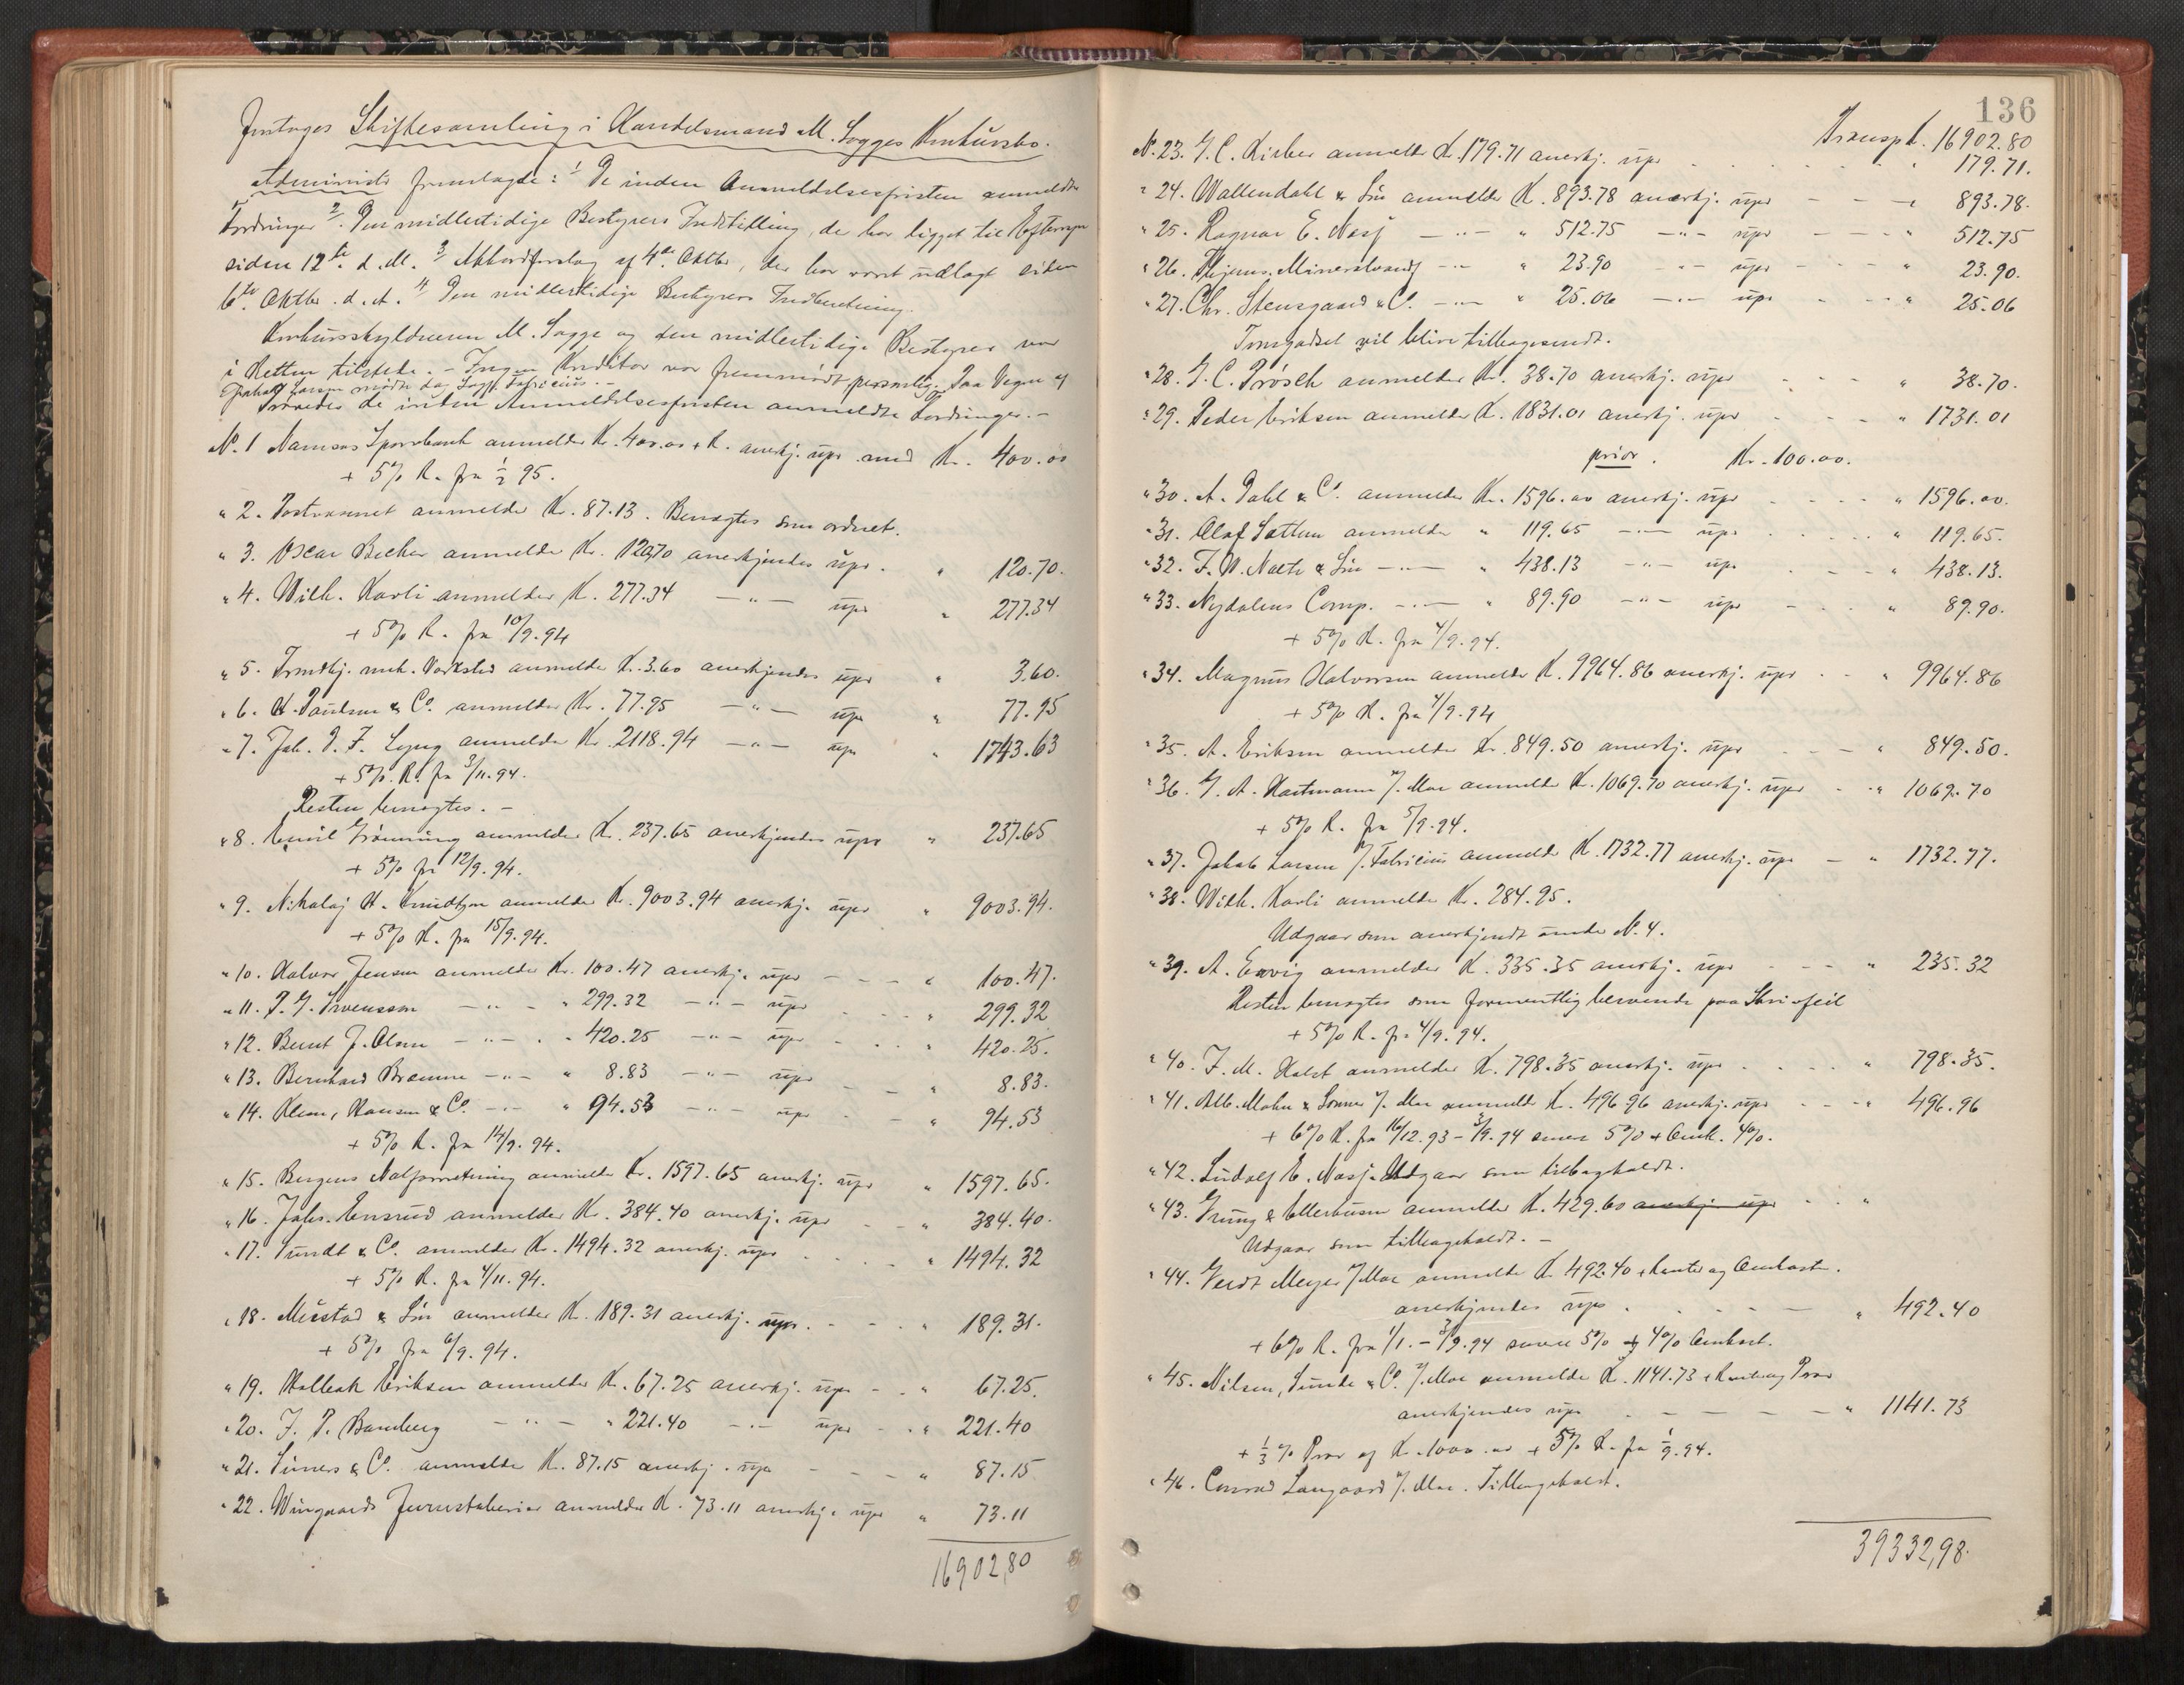 Foretoges Skiftesamling i Handelsmand M. Sagges Konkursbo.
Administr fremlagde: 1/ De inden Anmeldelsesfristen anmeldte
Fordringer 2/ Den midlertidige Bestyrers Indstilling, der har ligget til Eftersyn
siden 12te d.M. 3/ Akkordforslag af 4de Oktbr, der har været udlagt siden
6te Oktbr. d.A. 4/ Den midlertidige Bestyrers Indberetning.
Konkursskyldneren M. Sagge og den midlertidige Bestyrer var
i Retten tilstede. - Ingen Kreditor var fremmødt personlig. Paa Vegne af
Jakob Larsen mødte Sagf. Fabricius. -
Prøvedes de inden Anmeldelsesfristen anmeldte Fordringer. -
No. 1 Namsos Sparebank anmelder Kr. 400.00 + R. anerkj. upr med Kr. 400.00
+ 5% R. fra 1/2 95.
" 2. Postvæsenet anmelder Kr. 87.13. Benægtes som ordnet.
" 3. Oscar Becker anmelder Kr. 120.70 anerkjendes upr. " 120.70.
" 4. Wilh. Karli anmelder K. 277.34 -"- upr " 277.34
+ 5% R. fra 10/9.94
" 5. Trondhj. mek. Værksted anmelder K. 3.60 anerkjendes upr " 3.60.
" 6. Paulsen & Co. anmelder Kr. 77.95 -"- upr " 77.95
" 7. Joh. F. Lyng anmelder Kr. 2118.94 -"- upr " 1743.63
+ 5% R. fra 3/11.94.
Resten benægtes. -
" 8. Emil Grønning anmelder Kr. 237.65 anerkjendes upr " 237.65
+ 5% fra 12/9.94.
" 9. Nikolaj H. Knudtzon anmelder Kr. 9003.94 anerkj. upr " 9003.94.
+ 5% R. fra 15/9.94.
" 10. Halvor Jensen anmelder Kr. 100.47 anerkj. upr - - " 100.47.
" 11. P. G. Svensson -"- " 299.32 -"- upr " 299.32
" 12. Bernt J. Olsen -"- " 420.25 -"- upr " 420.25.
" 13. Bernhard Brænne -"- " 8.83 -"- upr " 8.83.
" 14. Klem, Hansen & Co. -"- " 94.53 -"- upr " 94.53
+ 5% R. fra 14/9.94.
" 15. Bergens Notforretning anmelder Kr. 1597.65 anerkj. upr " 1597.65.
" 16. Johs. Ensrud anmelder Kr. 384.40 anerkj. upr " 384.40.
" 17. Sundt & Co. anmelder Kr. 1494.32 anerkj. upr " 1494.32
+ 5% R. fra 4/11.94.
" 18. Mustad & Søn anmelder Kr. 189.31 anerkj. upr. " 189.31.
+ 5% fra 6/9.94.
" 19. Halleak Eriksen anmelder K. 67.25 anerkj. upr - " 67.25.
" 20. J. P. Bamberg -"- " 221.40 -"- upr " 221.40
" 21. Sivers & Co. anmelder K. 87.15 anerkj. upr " 87.15
" 22. Wingaards anmelder K. 73.11 anerkj. upr " 73.11
16902,80
136
Transpt. 16902.80
N. 23. G. C. anmelder K. 179.71 anerkj. upr " 179.71.
" 24. Wallendahl & Søn anmelder K. 893.78 anerkj. upr - - " 893.78.
" 25. Ragnar E. Nasj -"- " 512.75 -"- upr " 512.75
" 26. Mineralvandf -"- " 23.90 -"- upr " 23.90.
" 27. Chr. Stensgaard & Co. -"- " 25.06 -"- upr " 25.06
Tomgodset vil blive tilbagesendt.
" 28. G. C. Prösch anmelder Kr. 38.70 anerkj. upr " 38.70.
" 29. Peder Eriksen anmelder K. 1831.01 anerkj. upr " 1731.01
prior. Kr. 100.00.
" 30. A. Dahl & Co. anmelder Kr. 1596.00 anerkj. upr " 1596.00.
" 31. Olaf Sattem anmelder " 119.65 -"- upr " 119.65.
" 32. F. W. Naeth & Søn -"- " 438.13 -"- upr " 438.13.
" 33. Nydalens Comp. -"- " 89.90 -"- upr " 89.90.
+ 5% R. fra 4/9.94.
" 34. Magnus Halvorsen anmelder K. 9964.86 anerkj. upr " 9964.86
+ 5% R. fra 4/9.94
" 35. A. Eriksen anmelder Kr. 849.50 anerkj. upr " 849.50.
" 36. G. A. Hartmann v/ Moe anmelder K. 1069.70 anerkj. upr " 1069.70
+ 5% R. fra 5/9.94.
" 37. Jakob Larsen v/ Fabricius anmelder K. 1732.77 anerkj. upr - " 1732.77.
" 38. Wilh. Karli anmelder Kr. 284.95.
Udgaar som anerkjendt under N. 4.
" 39. A. Envig anmelder K. 335.35 anerkj. upr " 235.32
Resten benægtes som formentlig beroende paa Skrivfeil
+ 5% R. fra 4/9.94.
" 40. F. M. Holst anmelder K. 798.35 anerkj. upr " 798.35.
" 41. Alb. Mohn & Sønner v/ Moe anmelder K. 496.96 anerkj. upr " 496.96
+ 6% R. fra 16/12.93 - 3/9.94 senere 5% + Omk. 4%.
" 42. Ludolf E. Nasj. Udgaar som tilbageholdt.
" 43. Grung & Ellerhusen anmelder K. 429.60 anerkj. upr "
Udgaar som tilbageholdt. -
" 44. Gerdt Meyer v/ Moe anmelder K. 492.40 + Renter og Omkostn.
anerkjendes upr " 492.40
+ 6% R. fra 1/1. - 3/9.94 senere 5% og 4% Omkost.
" 45. Nilsen, Sunde & Co. v/ Moe anmelder K. 1141.73 + Renter og Prov
anerkjendes upr " 1141.73
+ 1/3 % Prov af K. 1000.00 + 5% R. fra 1/9.94.
" 46. Conrad Langaard v/ Moe. Tilbageholdt.
39332,98.